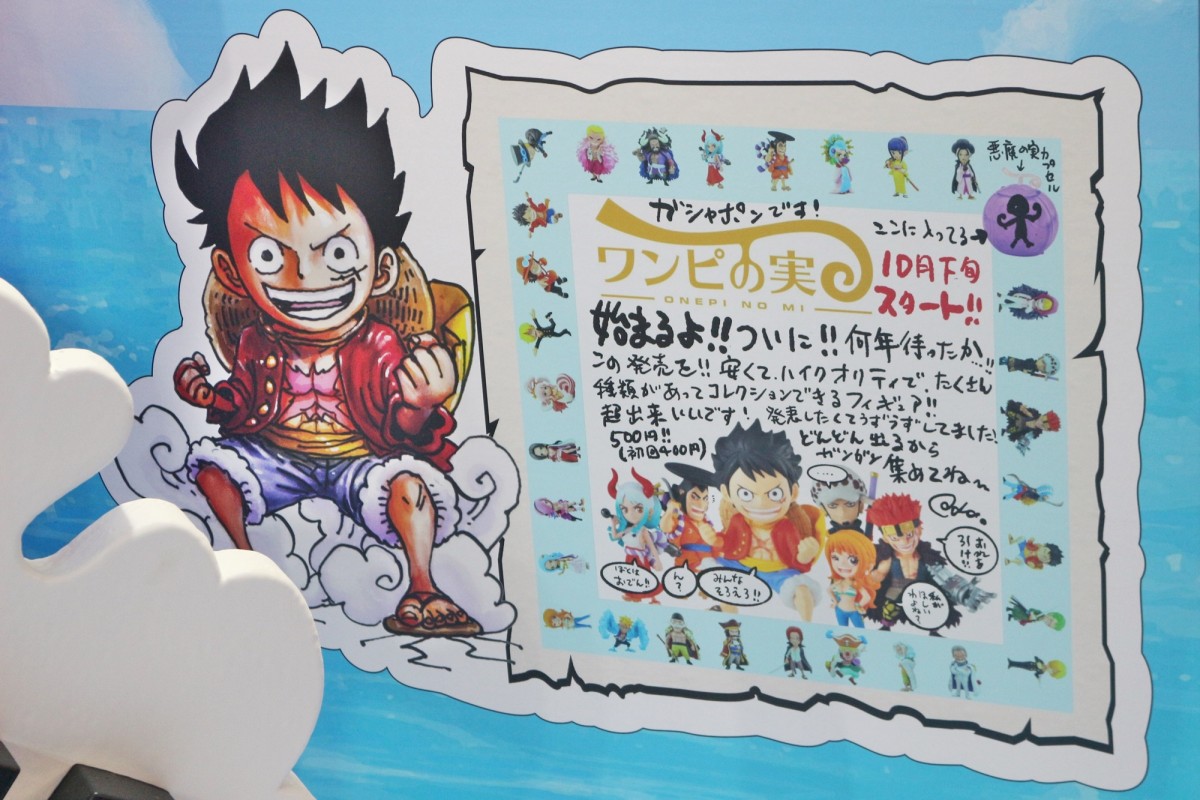 ガシャポンです!
悪魔の実カプセル
ここに入ってる→
ワンピの実
ONEPI NO MI
10月下旬
スタート!!
始まるよ!!ついに!!何年待ったか…!!
この発売を!!安くて、ハイクオリティで、たくさん
種類があってコレクションできるフィギュア!!
超出来いいです!発表したくてうずうずしてました!
500円!!
(初回400円)
どんどん出るから
ガンガン集めてね〜
ぼくは
おでん!!
ん?
みんな
そろえろ!!
……
私が
ほしい
わよね?
おれを
引け!!